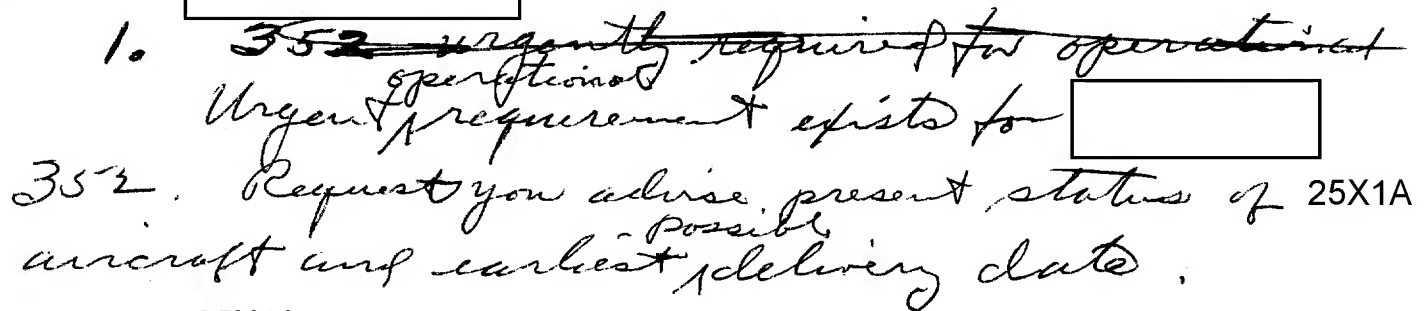 1. 352 urgently required for operational
operational
Urgent requirement exists for
352. Request you advise present status of 25X1A
possible
aircraft and earliest delivery date.